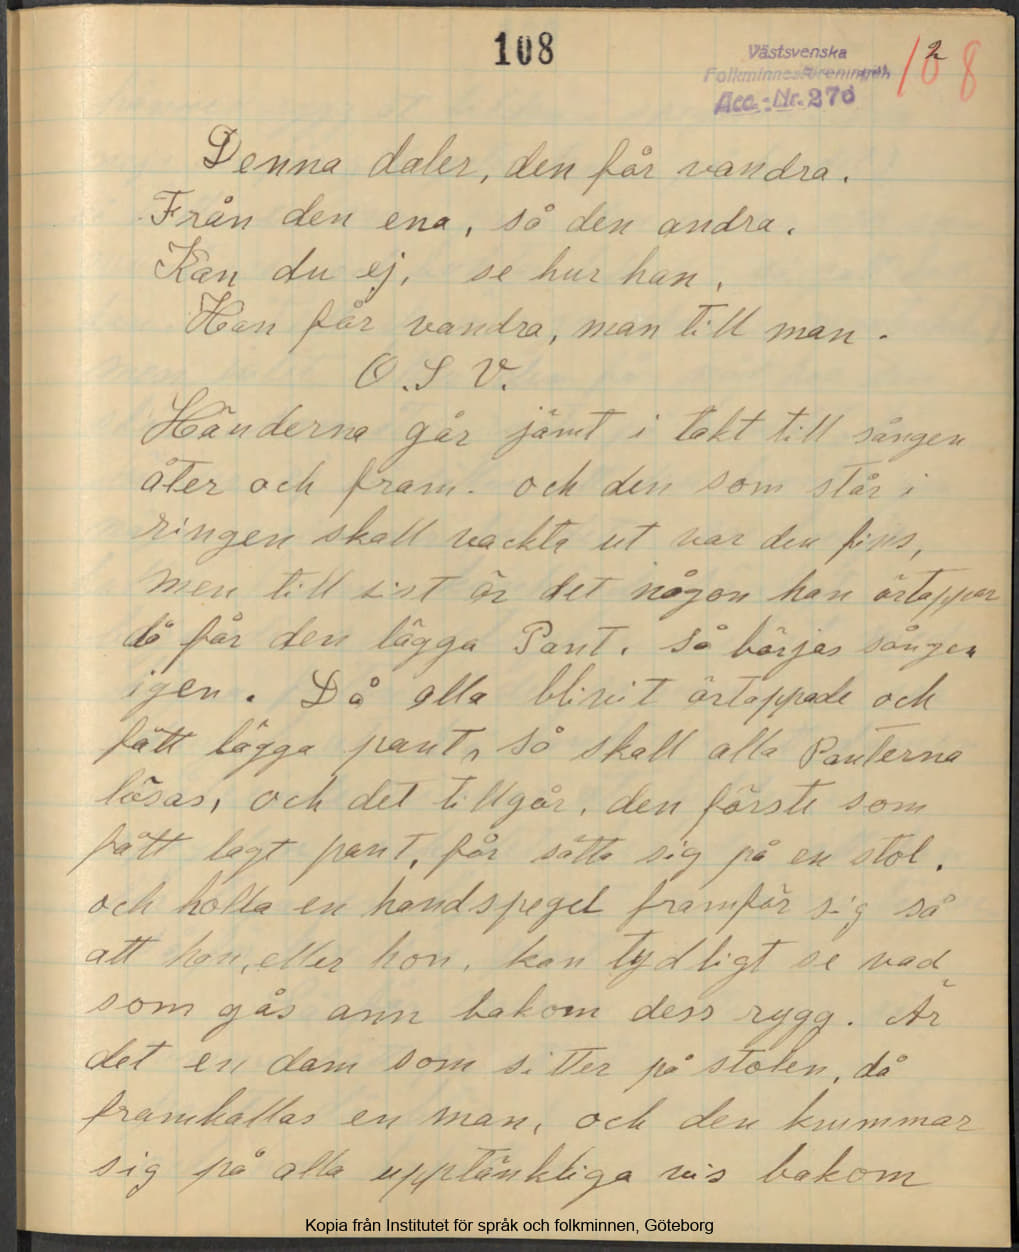 108
Västsvenska
Folkminnesföreningen
Acc.-Nr. 270
2
108
Denna daler, den får vandra.
Från den ena, så den andra.
Kan du ej, se hur han,
Han får vandra, man till man.
O.S V.
Händerna går jämt i takt till sången
åter och fram. och den som står i
ringen skall vackta ut var den fins,
men till sist är det någon han ärtappar
då får den lägga Pant. så börjas sången
igen. Då alla blivit ärtappade och
fått lägga pant, så skall alla Panterna
lösas, och det tillgår, den förste som
fått lagt pant, får sätta sig på en stol.
och holla en handspegel framför sig så
att han, eller hon, kan tydligt se vad
som gås ann bakom dess rygg. Är
det en dam som sitter på stolen, då
framkallas en man, och den krummar
sig på alla upptänkliga vis bakom
Kopia från Institutet för språk och folkminnen, Göteborg